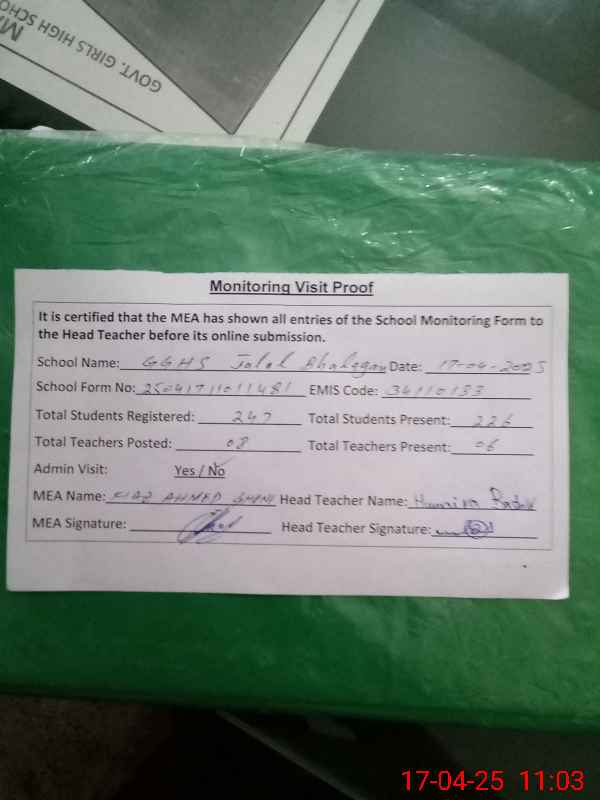 GOVT. GIRLS HIGH SCHO
Monitoring Visit Proof
It is certified that the MEA has shown all entries of the School Monitoring Form to
the Head Teacher before its online submission.
School Name: GGHS Jalal Date: 17-04-2025
School Form No: 25041711011481 EMIS Code: 34110133
Total Students Registered: 247 Total Students Present: 226
Total Teachers Posted: 08 Total Teachers Present: 06
Admin Visit: Yes / No
MEA Name: AHMED Head Teacher Name:
MEA Signature: Head Teacher Signature:
17-04-25 11:03